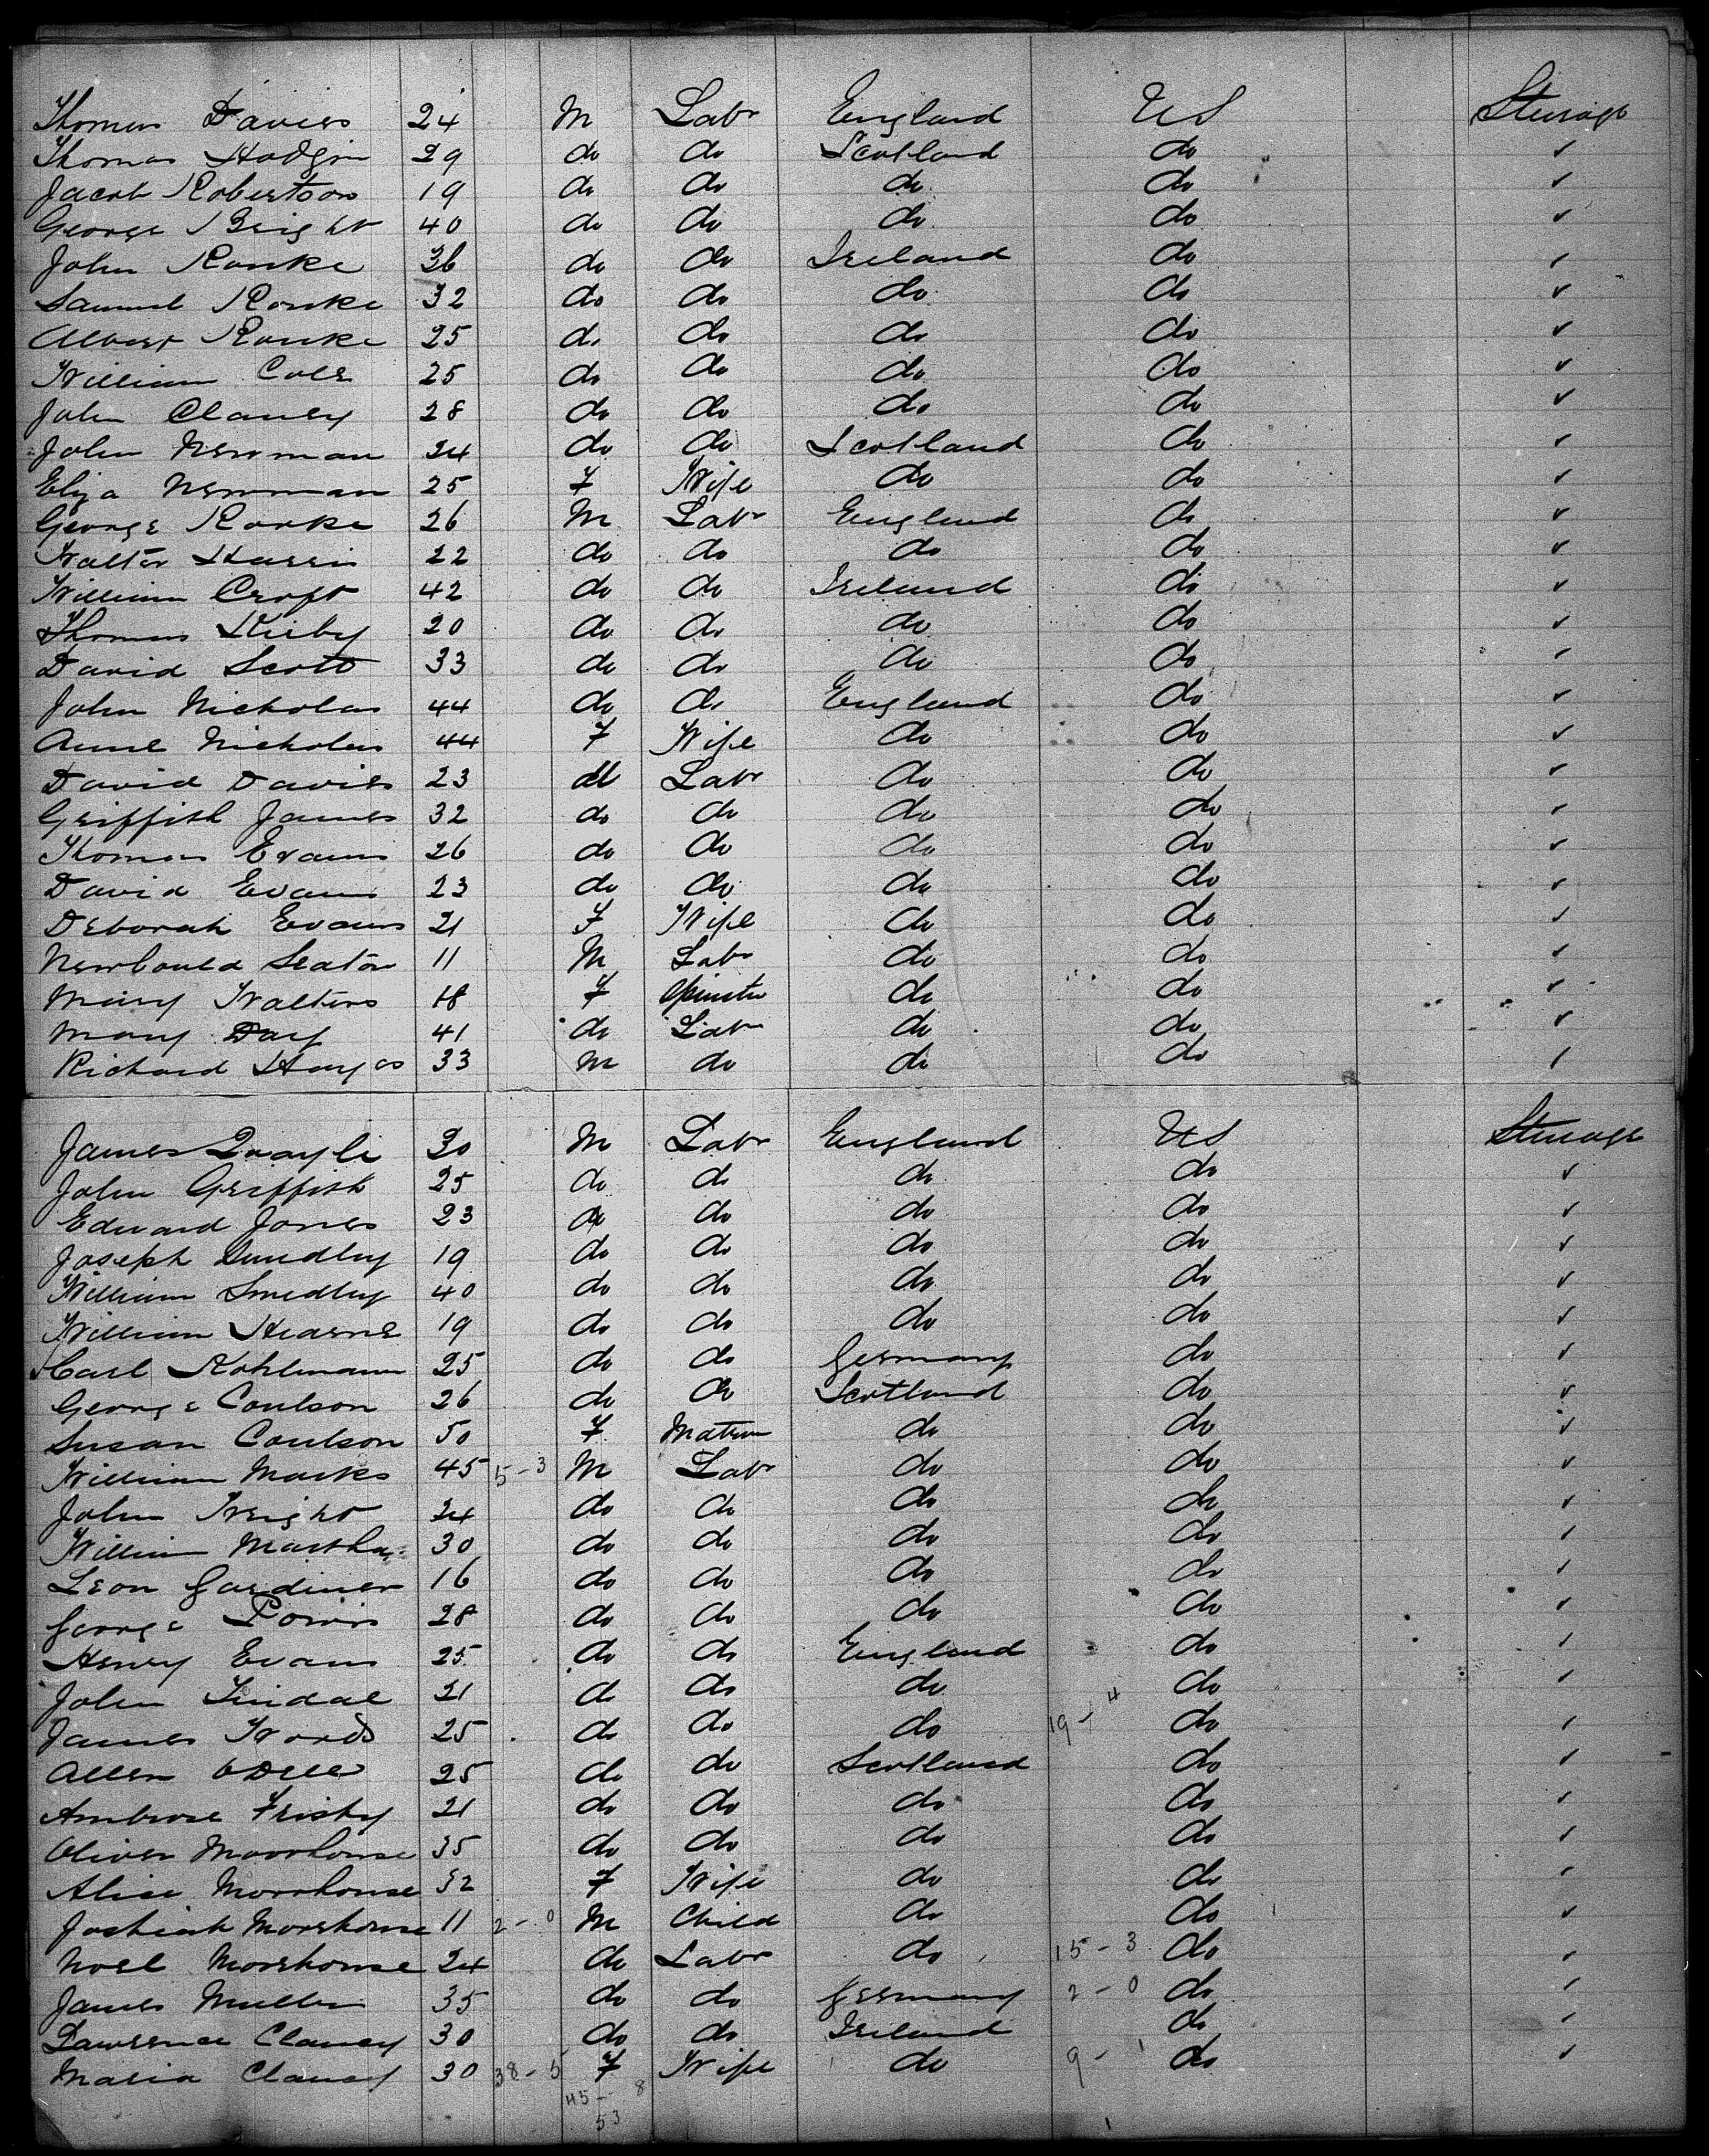 Thomas Davies 24 M Labr England US Steerage
Thomas Hodgin 29 do do Scotland do ✓
Jacob Robertson 19 do do do do ✓
George Bright 40 do do do do ✓
John Rourke 36 do do Ireland do ✓
Samuel Rourke 32 do do do do ✓
Albert Rourke 25 do do do do ✓
William Cole 25 do do do do ✓
John Clancy 28 do do do do ✓
John Newman 24 do do Scotland do ✓
Eliza Newman 25 F Wife do do ✓
George Rorke 26 M Labr England do ✓
Walter Harris 22 do do do do ✓
William Croft 42 do do Ireland do ✓
Thomas Kirby 20 do do do do ✓
David Scott 33 do do do do ✓
John Nicholas 44 do do England do ✓
Anne Nicholas 44 F Wife do do ✓
David Davies 23 M Labr do do ✓
Griffith James 32 do do do do ✓
Thomas Evans 26 do do do do ✓
David Evans 23 do do do do ✓
Deborah Evans 21 F Wife do do ✓
Newbould Seaton 11 M Labr do do ✓
Mary Walters 18 F Spinster do do ✓
Mary Day 41 do Labr do do ✓
Richard Hayes 33 M do do do ✓
James Quayle 30 M Labr England US Steerage
John Griffith 25 do do do do ✓
Edward Jones 23 do do do do ✓
Joseph Smedley 19 do do do do ✓
William Smedley 40 do do do do ✓
William Hearne 19 do do do do ✓
Carl Kohlmann 25 do do Germany do ✓
George Coulson 26 do do Scotland do ✓
Susan Coulson 50 F Matron do do ✓
William Marks 45 5-3 M Labr do do ✓
John Wright 24 do do do do ✓
William 30 do do do do ✓
Leon Gardiner 16 do do do do ✓
George Powis 28 do do do do ✓
Henry Evans 25 do do England do ✓
John Tindal 21 do do do do ✓
James Woods 25 do do do 19-4 do ✓
Allen Odell 25 do do Scotland do ✓
Ambrose Frisby 21 do do do do ✓
Oliver Moorhouse 35 do do do do ✓
Alice Moorhouse 32 F Wife do do ✓
Joshiah Moorhouse 11 2-0 M Child do do ✓
Noel Moorhouse 24 do Labr do 15-3 do ✓
James Muller 35 do do Germany 2-0 do ✓
Lawrence Clancy 30 do do Ireland do ✓
Maria Clancy 30 38-5 F Wife do 9-1 do ✓
45-8
53